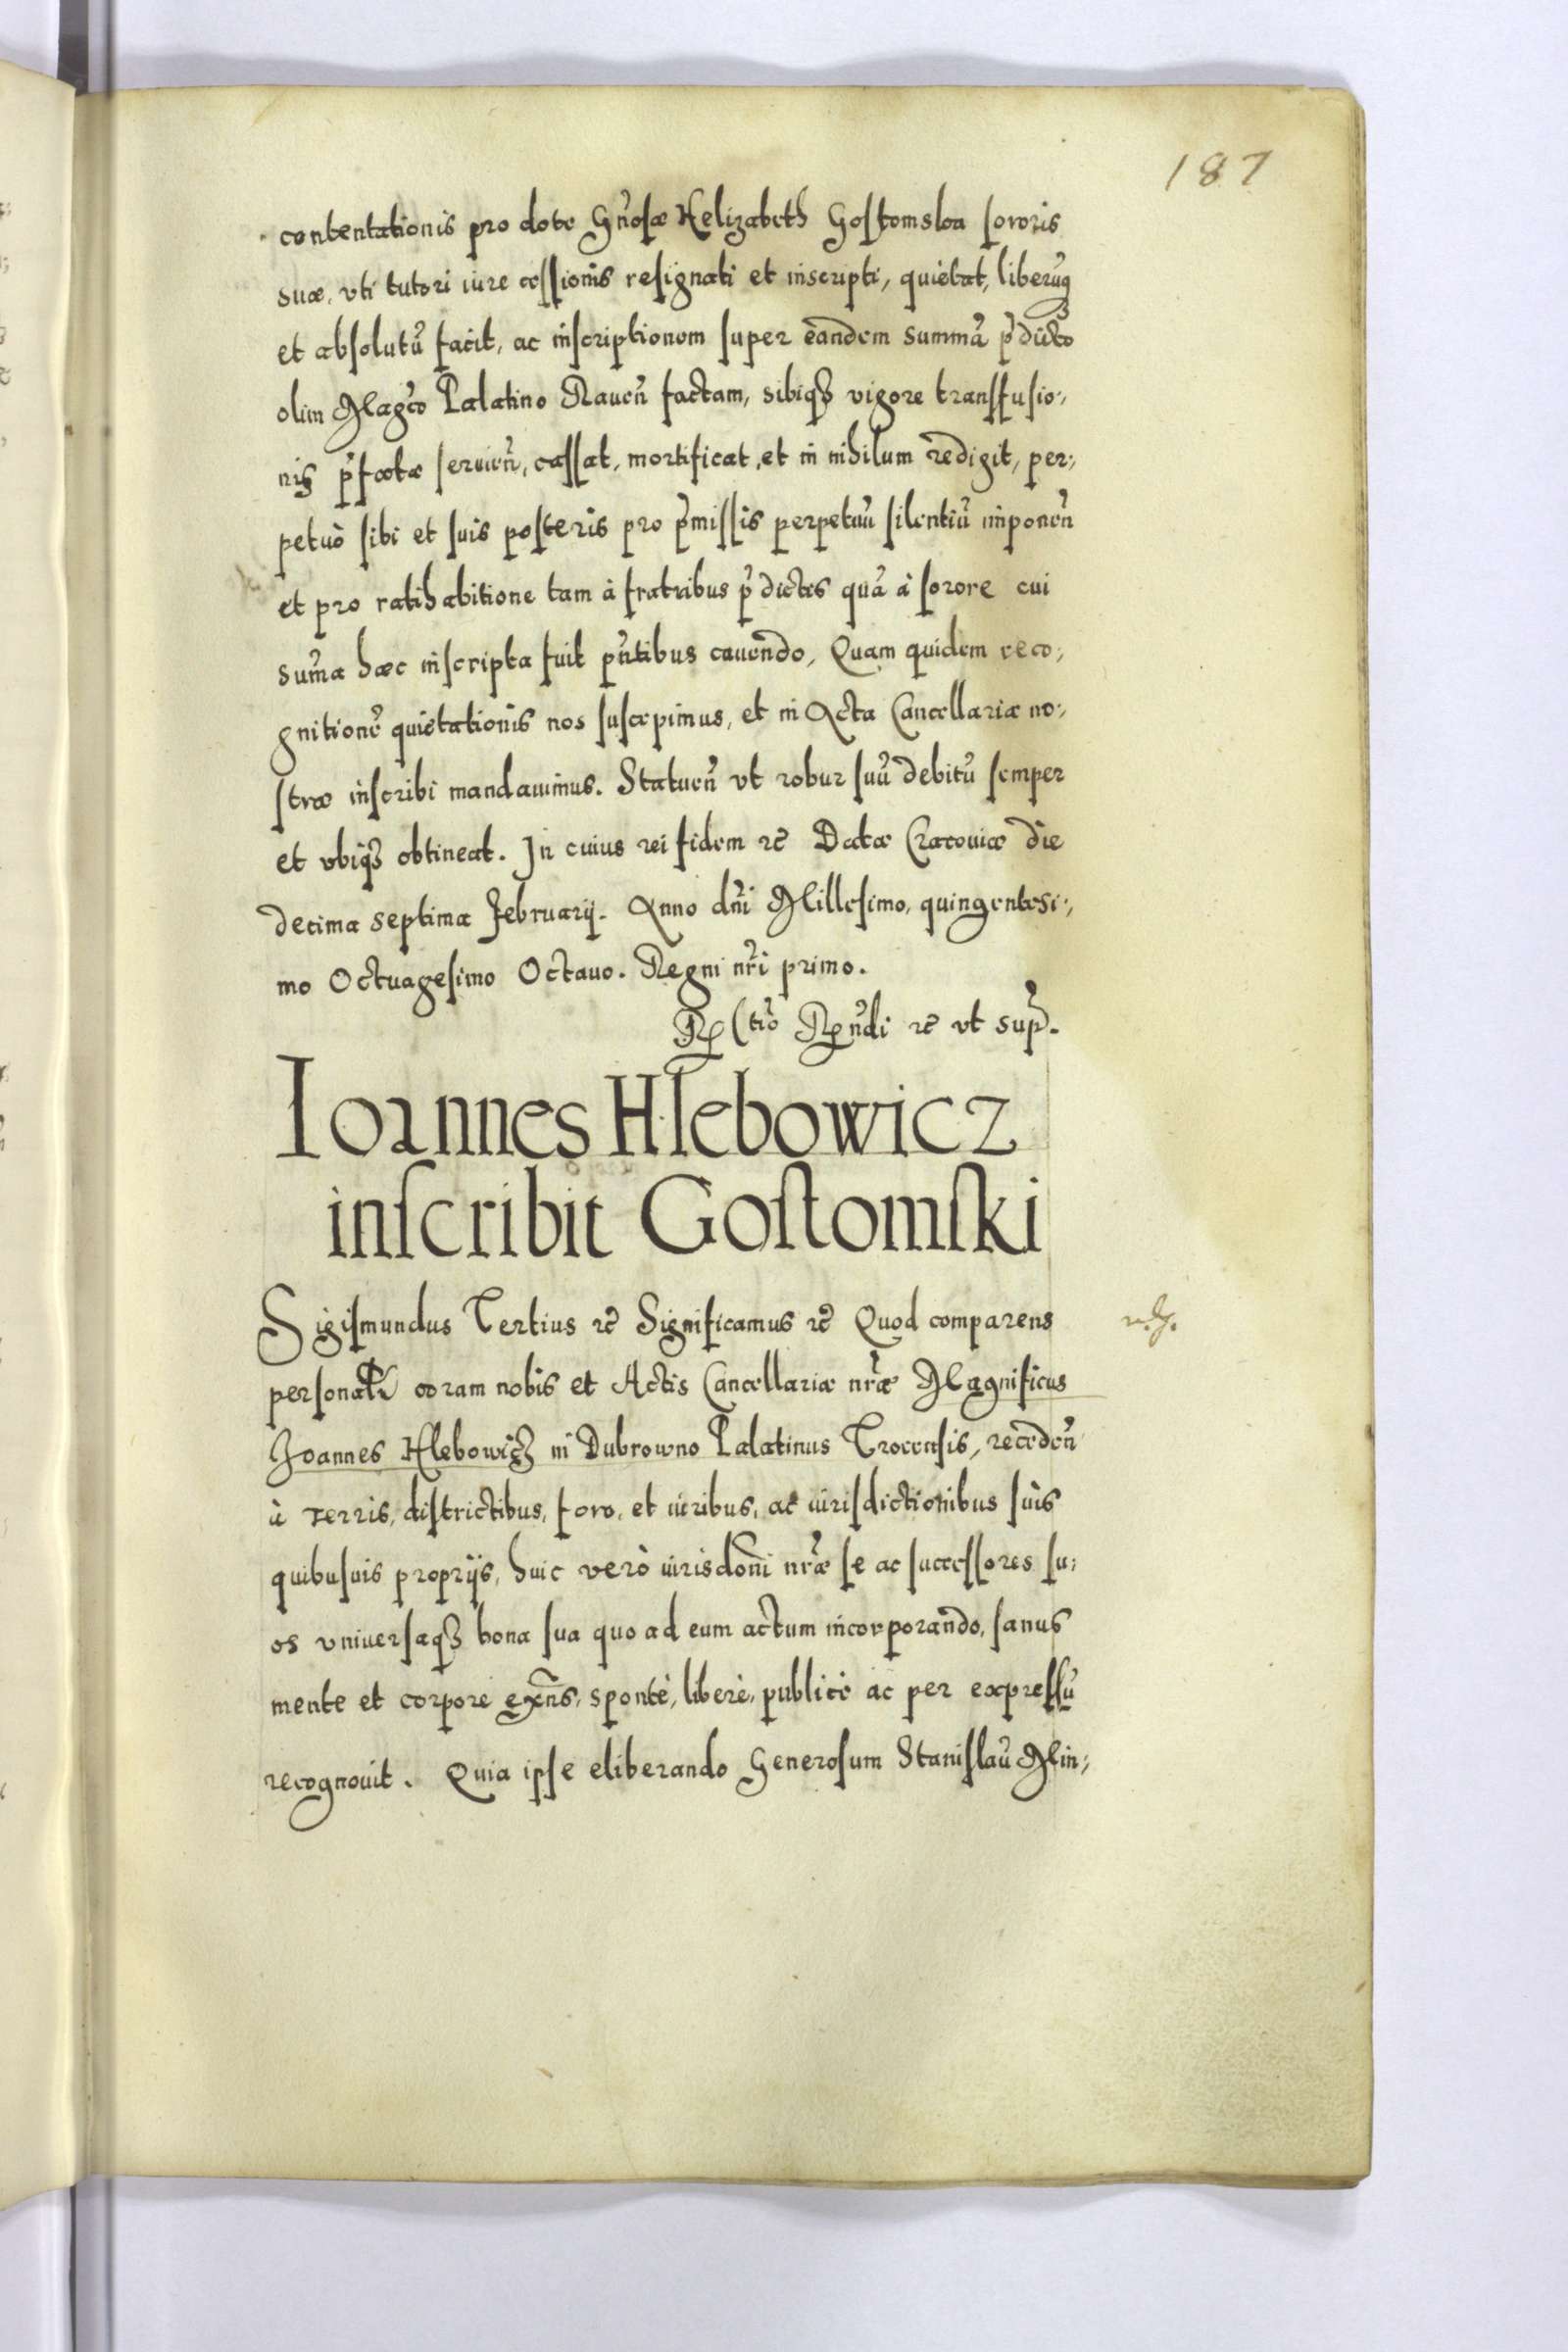 187
contentationis pro dote Gñosæ Helizabeth Gostomska sororis
suæ, vti tutori iure cessionis resignati et inscripti, quietat, liberuq
et absolutũ facit, ac inscriptionem super eandem summã p̃dicto
olim Magco Palatino Rauen̄ factam, sibiq₃ vigore transfusio-,
nis p̃fatæ seruien̄, cassat, mortificat, et in nihilum redigit, per-,
petuò sibi et suis posteris pro p̃missis perpetuũ silentiũ imponen̄
et pro ratihabitione tam à fratribus p̃dictis quã à sorore cui
sum̃a hæc inscripta fuit pñtibus cauendo, Quam quidem reco-,
gnitionẽ quietationis nos suscepimus, et in Acta Cancellariæ no-,
stræ inscribi mandauimus. Statuen̄ vt robur suũ debitũ semper
et vbiq₃ obtineat. In cuius rei fidem ꝛc̃ Datæ Cracouiæ die
decima septima Februarij. Anno dñi Millesimo, quingentesi-,
mo Octuagesimo Octauo. Regni nr̃i primo.
Rñdi ꝛc̃ vt sup̃.
Ioannes Hlebowicz
inscribit Gostomski
Sigismundus Tertius ꝛc̃ Significamus ꝛc̃ Quod comparens
personalr̃ coram nobis et Actis Cancellariæ nr̃æ Magnificus
Ioannes Hlebowicz in Dubrowno Palatinus Trocensis, receden̄
à terris, districtibus, foro, et iuribus, ac iurisdictionibus suis
quibusuis proprijs, huic verò iurisdoñi nr̃æ se ac successores su-,
os vniuersaq₃ bona sua quo ad eum actum incorporando, sanus
mente et corpore exñs, spontè, liberè, publicè ac per expressũ
recognouit. Quia ipse eliberando Generosum Stanislaũ Min-,